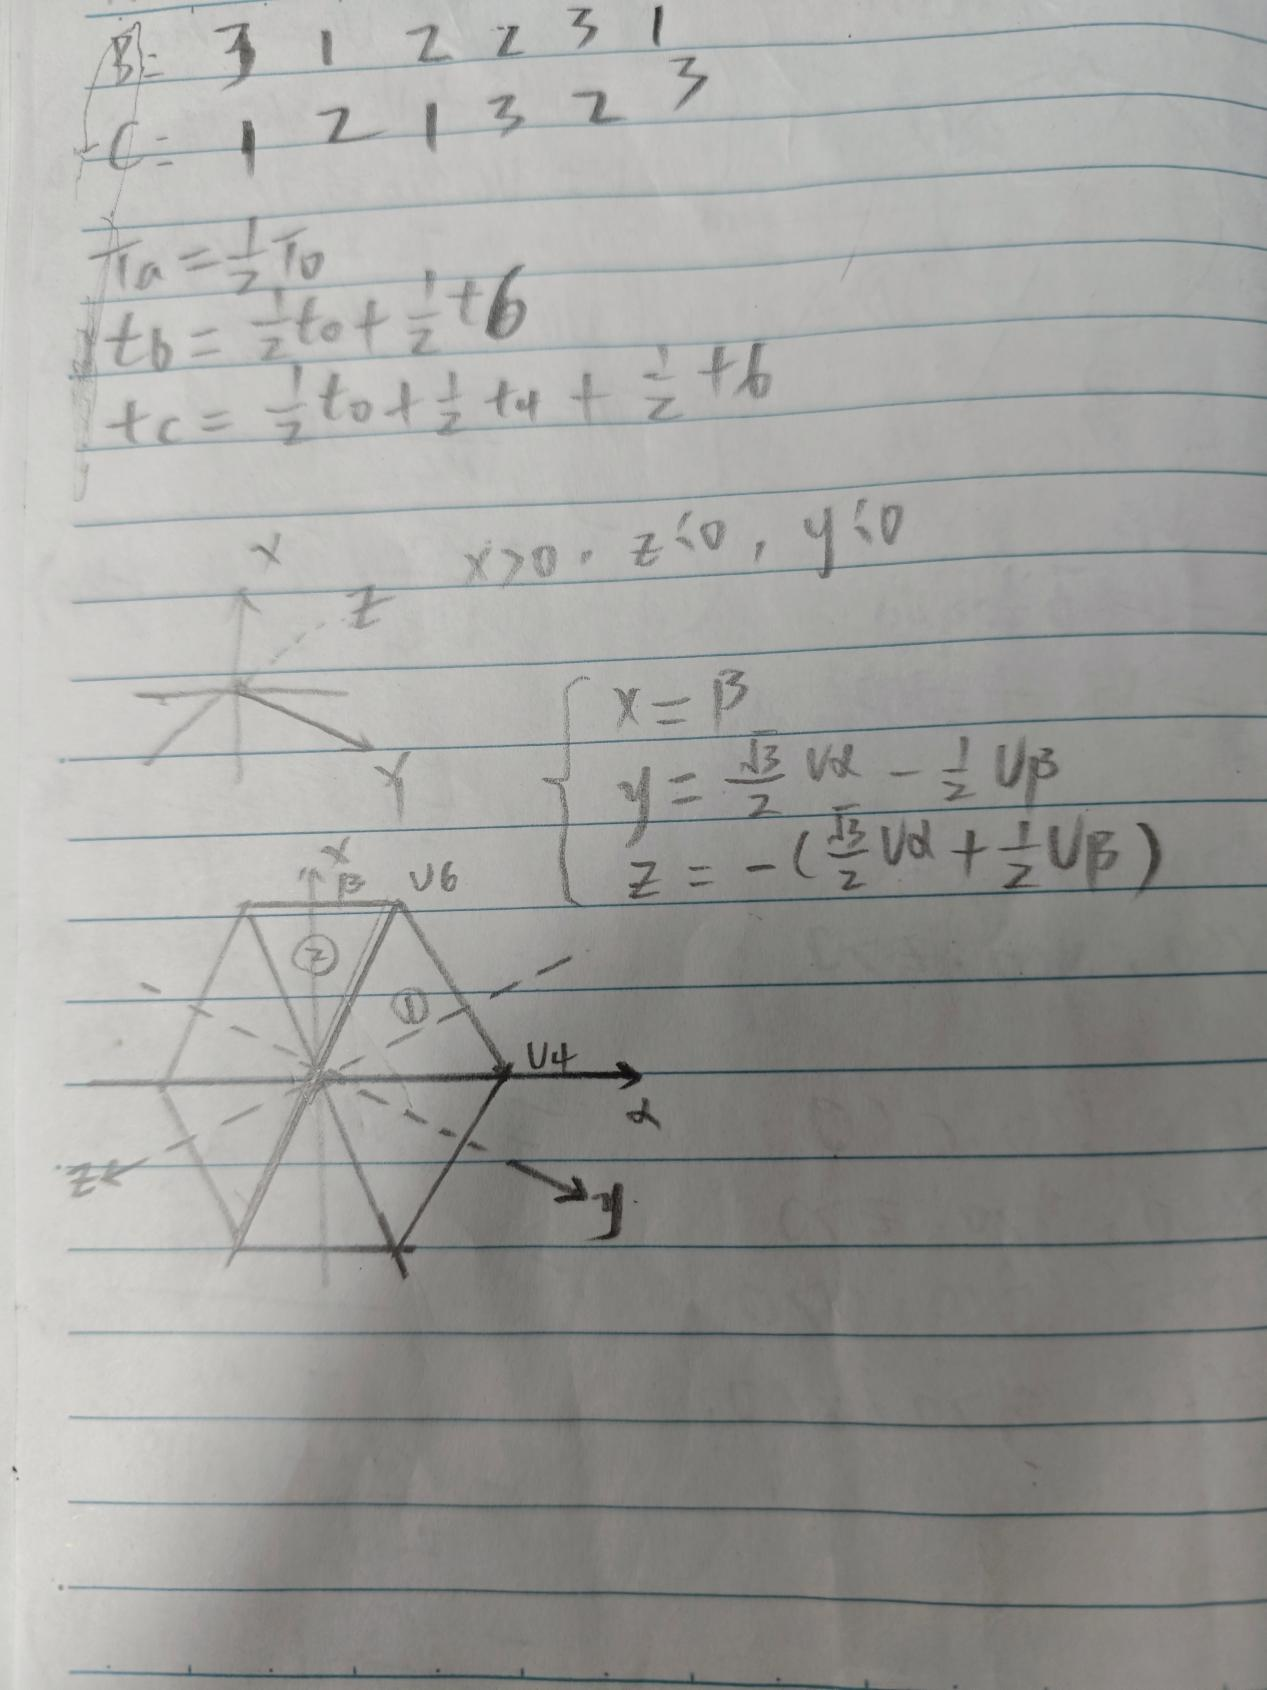 B= 3 1 2 2 3 1
C= 1 2 1 3 2 3
Ta = 1/2 T0
tb = 1/2 t0 + 1/2 t6
tc = 1/2 t0 + 1/2 t4 + 1/2 t6
x>0. z≤0, y≤0
X
Z
Y
x = β
y = √3/2 Uα - 1/2 Uβ
z = -(√3/2 Uα + 1/2 Uβ)
X
β
U6
②
①
U4
α
z
y